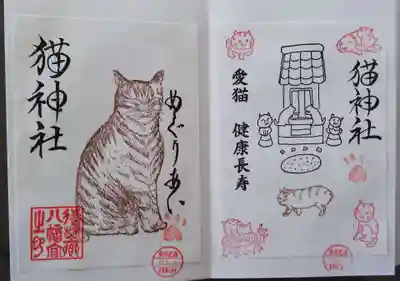 猫神社
めぐりあい
八幡宮
猫神社
愛猫 健康長寿